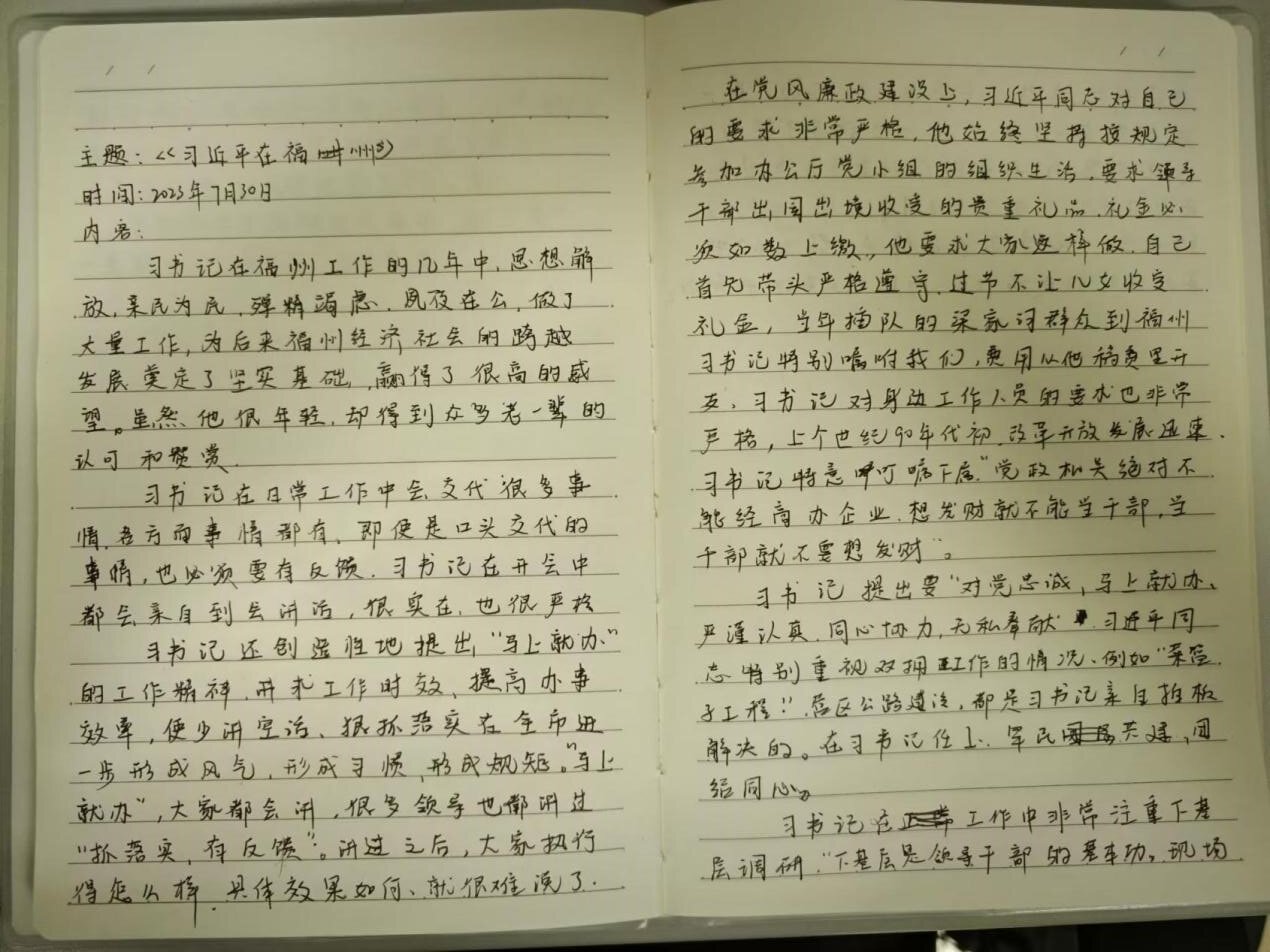 主题：《习近平在福州》
时间：2023年7月30日
内容：
习书记在福州工作的几年中，思想解
放，亲民为民，殚精竭虑，夙夜在公，做了
大量工作，为后来福州经济社会的跨越
发展奠定了坚实基础，赢得了很高的威
望。虽然他很年轻，却得到众多老一辈的
认可和赞赏。
习书记在日常工作中会交代很多事
情，各方面事情都有，即使是口头交代的
事情，也必须要有反馈。习书记在开会中
都会亲自到会讲话，很实在，也很严格
习书记还创造性地提出，“马上就办”
的工作精神，讲求工作时效，提高办事
效率，使少讲空话、狠抓落实在全市进
一步形成风气，形成习惯，形成规矩。“马上
就办”，大家都会讲，很多领导也都讲过
“抓落实，有反馈”。讲过之后，大家执行
得怎么样，具体效果如何、就很难说了.
在党风廉政建设上，习近平同志对自己
的要求非常严格，他始终坚持按规定
参加办公厅党小组的组织生活，要求领导
干部出国出境收受的贵重礼品、礼金必
须如数上缴，他要求大家这样做，自己
首先带头严格遵守，过节不让儿女收受
礼金，当年插队的梁家河群众到福州
习书记特别嘱咐我们，费用从他稿费里开
支，习书记对身边工作人员的要求也非常
严格，上个世纪90年代初，改革开放发展迅速.
习书记特意叮咛嘱下属“党政机关绝对不
能经商办企业，想发财就不能当干部，当
干部就不要想发财”。
习书记提出要“对党忠诚，马上就办、
严谨认真、同心协力，无私奉献”，习近平同
志特别重视双拥工作的情况、例如“菜篮
子工程”，营区公路建设，都是习书记亲自拍板
解决的。在习书记任上、军民共建，团
结同心。
习书记在工作中非常注重下基
层调研，“下基层是领导干部的基本功。现场